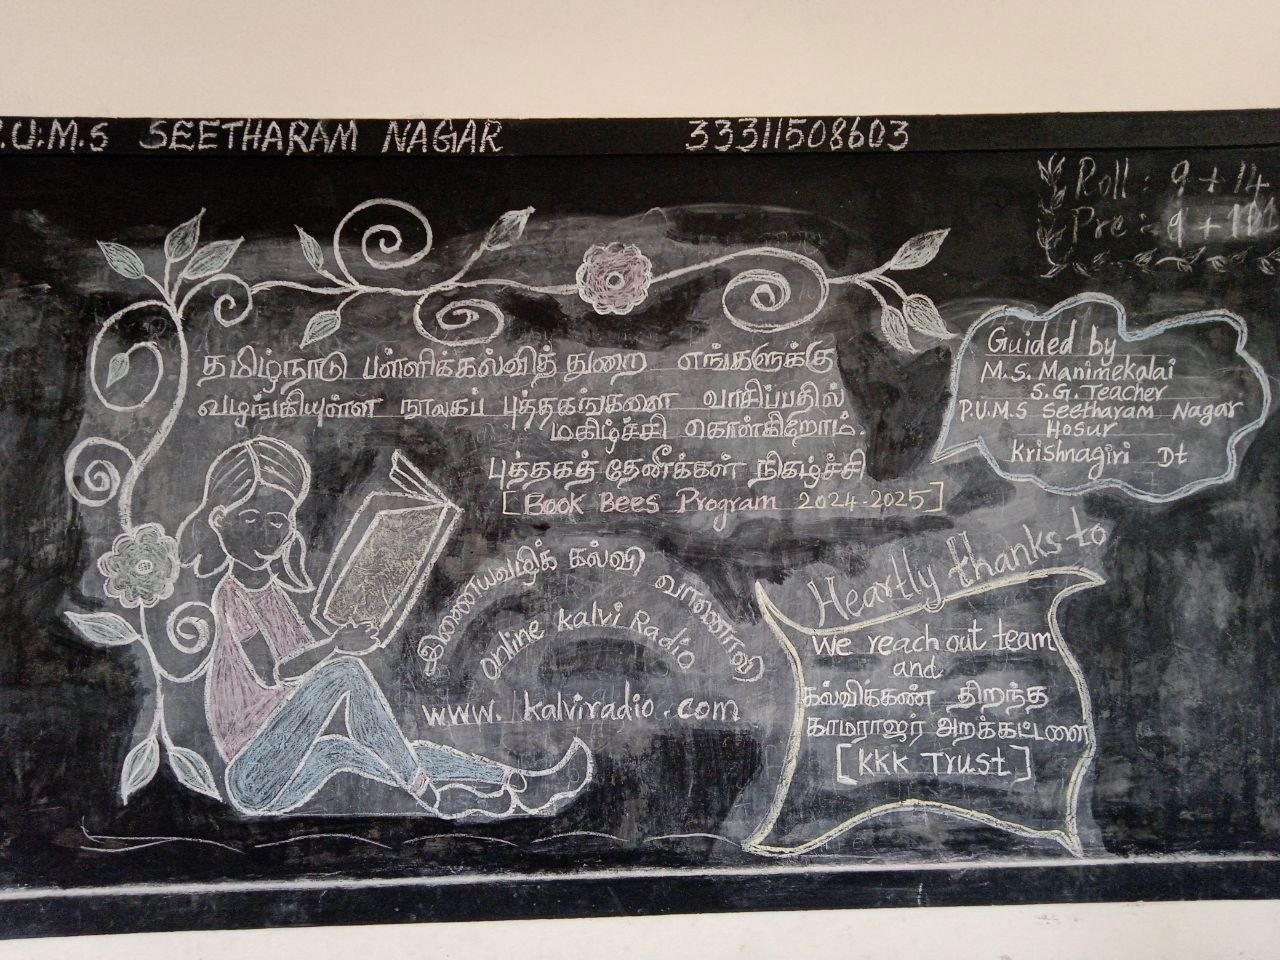 P.U.M.S SEETHARAM NAGAR 33311508603
Roll : 9 + 14
Pre : 9 +
தமிழ்நாடு பள்ளிக்கல்வித் துறை எங்களுக்கு
வழங்கியுள்ள நூலகப் புத்தகங்களை வாசிப்பதில்
மகிழ்ச்சி கொள்கிறோம்.
புத்தகத் தேனீக்கள் நிகழ்ச்சி
[Book Bees Program 2024-2025]
இணையவழிக் கல்வி வானொலி
Online Kalvi Radio
www.kalviradio.com
Guided by
M.S. Manimekalai
S.G. Teacher
P.U.M.S Seetharam Nagar
Hosur
Krishnagiri Dt
Heartly thanks to
We reach out team
and
கல்விக்கண் திறந்த
காமராஜர் அறக்கட்டளை
[KKK Trust]